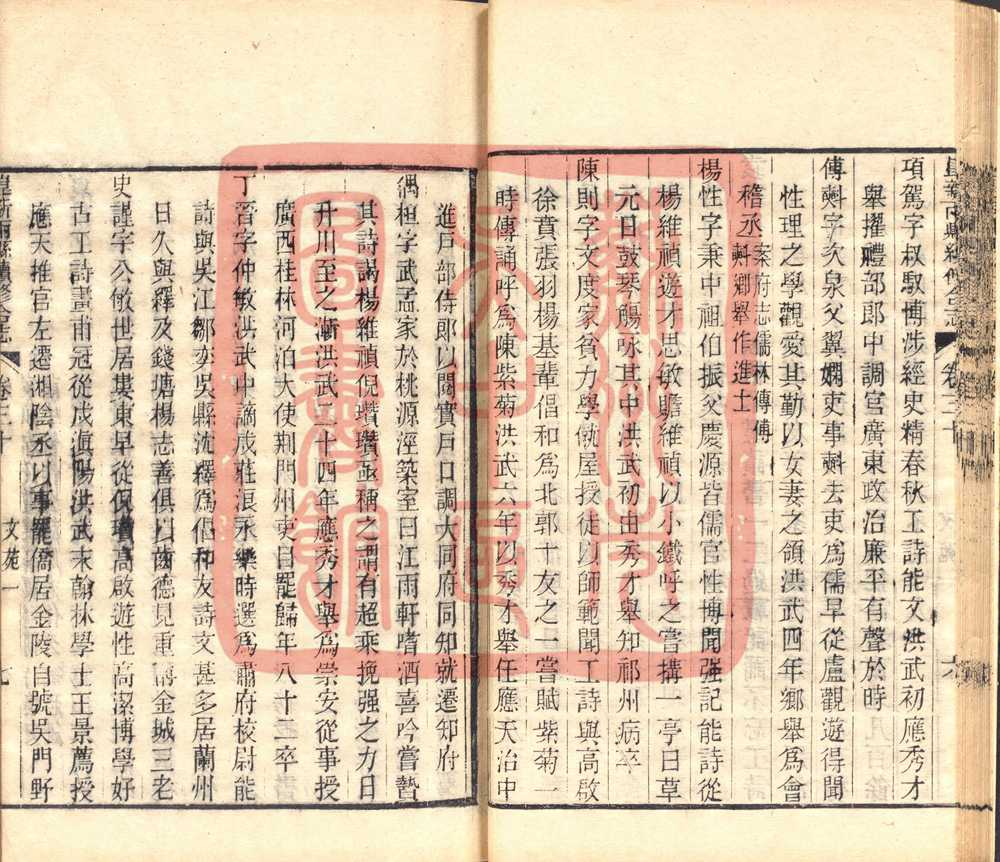 項駕字叔馭博涉經史精春秋工詩能文洪武初應秀才
舉擢禮部郎中調官廣東政治廉平有聲於時
傅㪷字次泉父翼嫻吏事㪷去吏爲儒早從盧觀遊得聞
性理之學觀愛其勤以女妻之領洪武四年鄉舉爲會
稽丞案府志儒林傳傅㪷鄉舉作進士
楊性字秉中祖伯振父慶源皆儒官性博聞强記能詩從
楊維禎遊才思敏贍維禎以小鐵呼之嘗構一亭曰草
元日鼓琴觴咏其中洪武初由秀才舉知祁州病卒
陳則字文度家貧力學僦屋授徒以師範聞工詩與高啟
徐賁張羽楊基輩倡和爲北郭十友之一嘗賦紫菊一
時傳誦呼爲陳紫菊洪武六年以秀才舉任應天治中
卷三十
六
進戸部侍郎以閱實戸口調大同府同知就遷知府
偶桓字武孟家於桃源涇築室曰江雨軒嗜酒喜吟嘗贄
其詩謁楊維禎倪瓚瓚亟稱之謂有超乘挽强之力日
升川至之漸洪武二十四年應秀才舉爲崇安從事授
廣西桂林河泊大使荆門州吏目罷歸年八十二卒
丁晉字仲敏洪武中謫戍莊浪永樂時選爲肅府校尉能
詩與吳江鄒奕吳縣沈繹爲倡和友詩文甚多居蘭州
日久與繹及錢塘楊志善俱以齒德見重稱金城三老
史謹字公敏世居婁東早從倪瓚高啟遊性高潔博學好
古工詩畫甫冠從戍滇陽洪武末翰林學士王景薦授
應天推官左遷湘陰丞以事罷僑居金陵自號吳門野
崑新兩縣續修合志
卷三十
文苑一
七
蘇州市公共圖書館